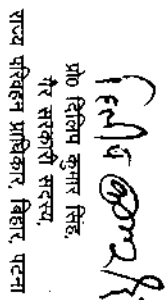 दिलीप कुमार सिं
प्रो० दिलिप कुमार सिंह,
गैर सरकारी सदस्य,
राज्य परिवहन प्राधिकार, बिहार, पटना